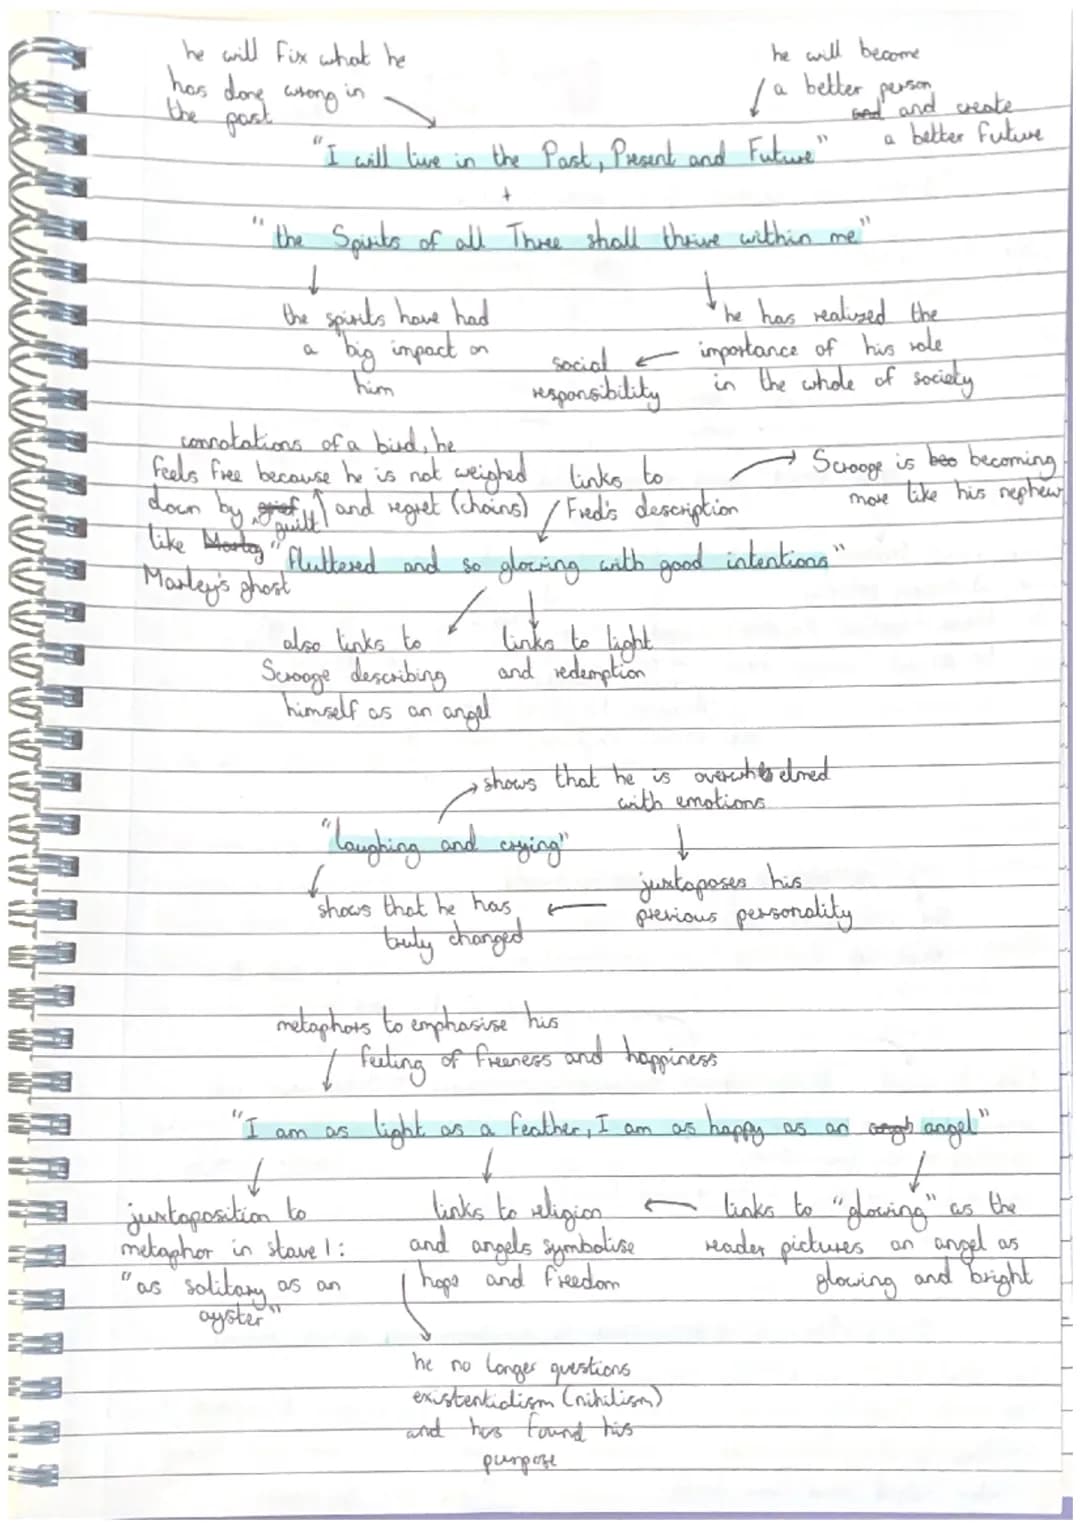 he will fix what he
has done wrong in
the past
he will become
a better person
and and create
a better future
"I will live in the Past, Present and Future"
+
"the Spirits of all Three shall thrive within me"
the spirits have had
a big impact on
him
he has realized the
importance of his role
in the whole of society
social
responsibility
connotations of a bird, he
feels free because he is not weighed
down by grief guilt and regret (chains)
like Marley
Marley's ghost
links to
Fred's description
Scrooge is bec becoming
more like his nephew
"fluttered and so glowing with good intentions"
also links to
Scrooge describing
himself as an angel
links to light
and redemption
shows that he is overwhelmed
with emotions
"laughing and crying"
juxtaposes his
previous personality
shows that he has
truly changed
metaphors to emphasise his
feeling of freeness and happiness
"I am as light as a feather, I am as happy as an angel"
juxtaposition to
metaphor in stave 1:
"as solitary as an
oyster"
links to religion
and angels symbolise
hope and freedom
links to "glowing" as the
reader pictures an angel as
glowing and bright
he no longer questions
existentialism (nihilism)
and has found his
purpose